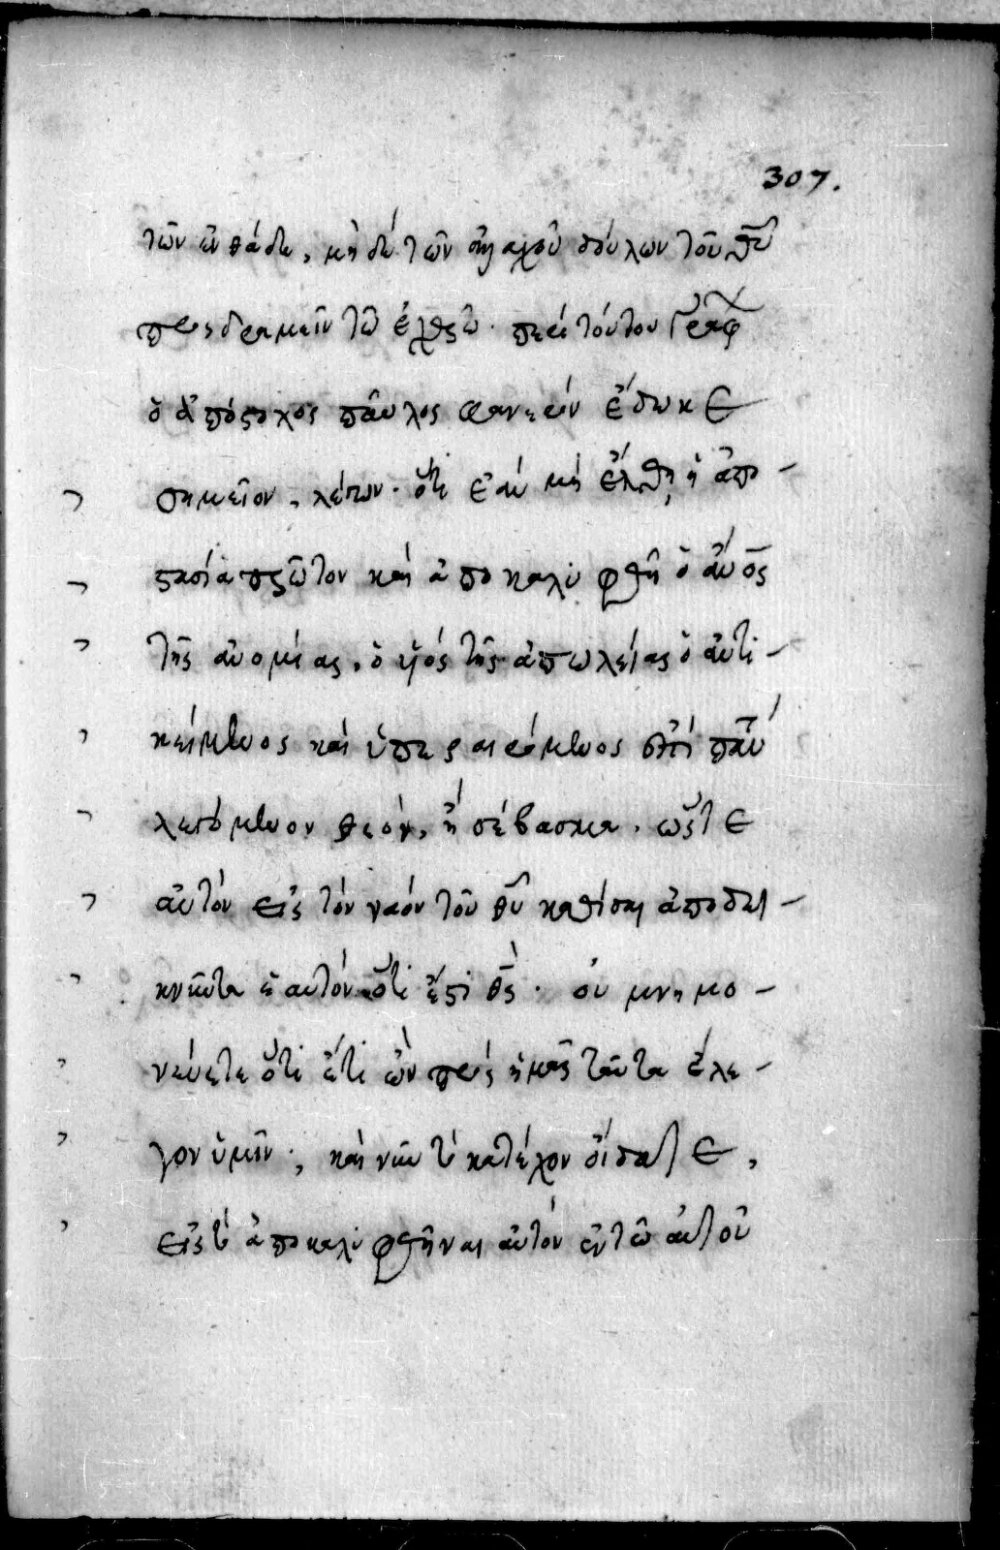 307.
τῶν ἐνθάδε, μὴ δὲ τῶν ἀλλαχοῦ δούλων τοῦ θῦ
προσδραμεῖν τῶ ἐλθεῖν. περὶ τούτου γράφων
ὁ ἀπόστολος παῦλος φανερὸν ἔδωκε
σημεῖον, λέγων. ὅτι ἐὰν μὴ ἔλθη ἡ ἀπο-
στασία πρῶτον καὶ ἀποκαλυφθῆ ὁ ἄνος
τῆς ἀνομίας, ὁ υἱὸς τῆς ἀπωλείας ὁ ἀντι-
κείμενος καὶ ὑπεραιρόμενος ἐπὶ πάντα
λεγόμενον θεὸν, ἢ σέβασμα. ὥστε
αὐτὸν εἰς τὸν ναὸν τοῦ θῦ καθίσαι ἀποδει-
κνύντα ἑαυτὸν ὅτι ἔστι θς. οὐ μνημο-
νεύετε ὅτι ἔτι ὢν πρὸς ἡμᾶς ταῦτα ἔλε-
γον ὑμῖν; καὶ νῦν τὸ κατέχον οἴδατε,
εἰς τὸ ἀποκαλυφθῆναι αὐτὸν ἐν τῶ αὐτοῦ